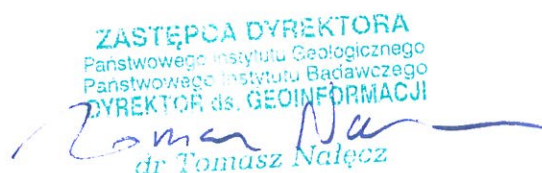 ZASTĘPCA DYREKTORA
Państwowego Instytutu Geologicznego
Państwowego Instytutu Badawczego
DYREKTOR ds. GEOINFORMACJI
dr Tomasz Nałęcz